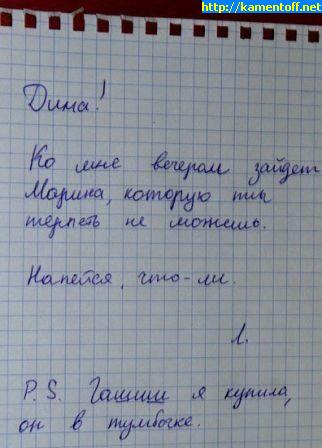 http://kamentoff.net
Дима!
Ко мне вечером зайдет
Марина, которую ты
терпеть не можешь.
Напейся, что-ли.
Л.
P.S. Гашиш я купила,
он в тумбочке.